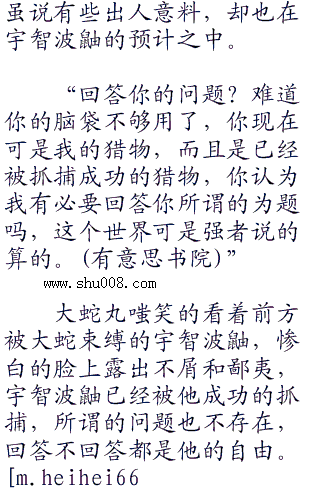 虽说有些出人意料，却也在
宇智波鼬的预计之中。
“回答你的问题？难道
你的脑袋不够用了，你现在
可是我的猎物，而且是已经
被抓捕成功的猎物，你认为
我有必要回答你所谓的为题
吗，这个世界可是强者说的
算的。(有意思书院)”
www.shu008.com
大蛇丸嗤笑的看着前方
被大蛇束缚的宇智波鼬，惨
白的脸上露出不屑和鄙夷，
宇智波鼬已经被他成功的抓
捕，所谓的问题也不存在，
回答不回答都是他的自由。
[m.heihei66